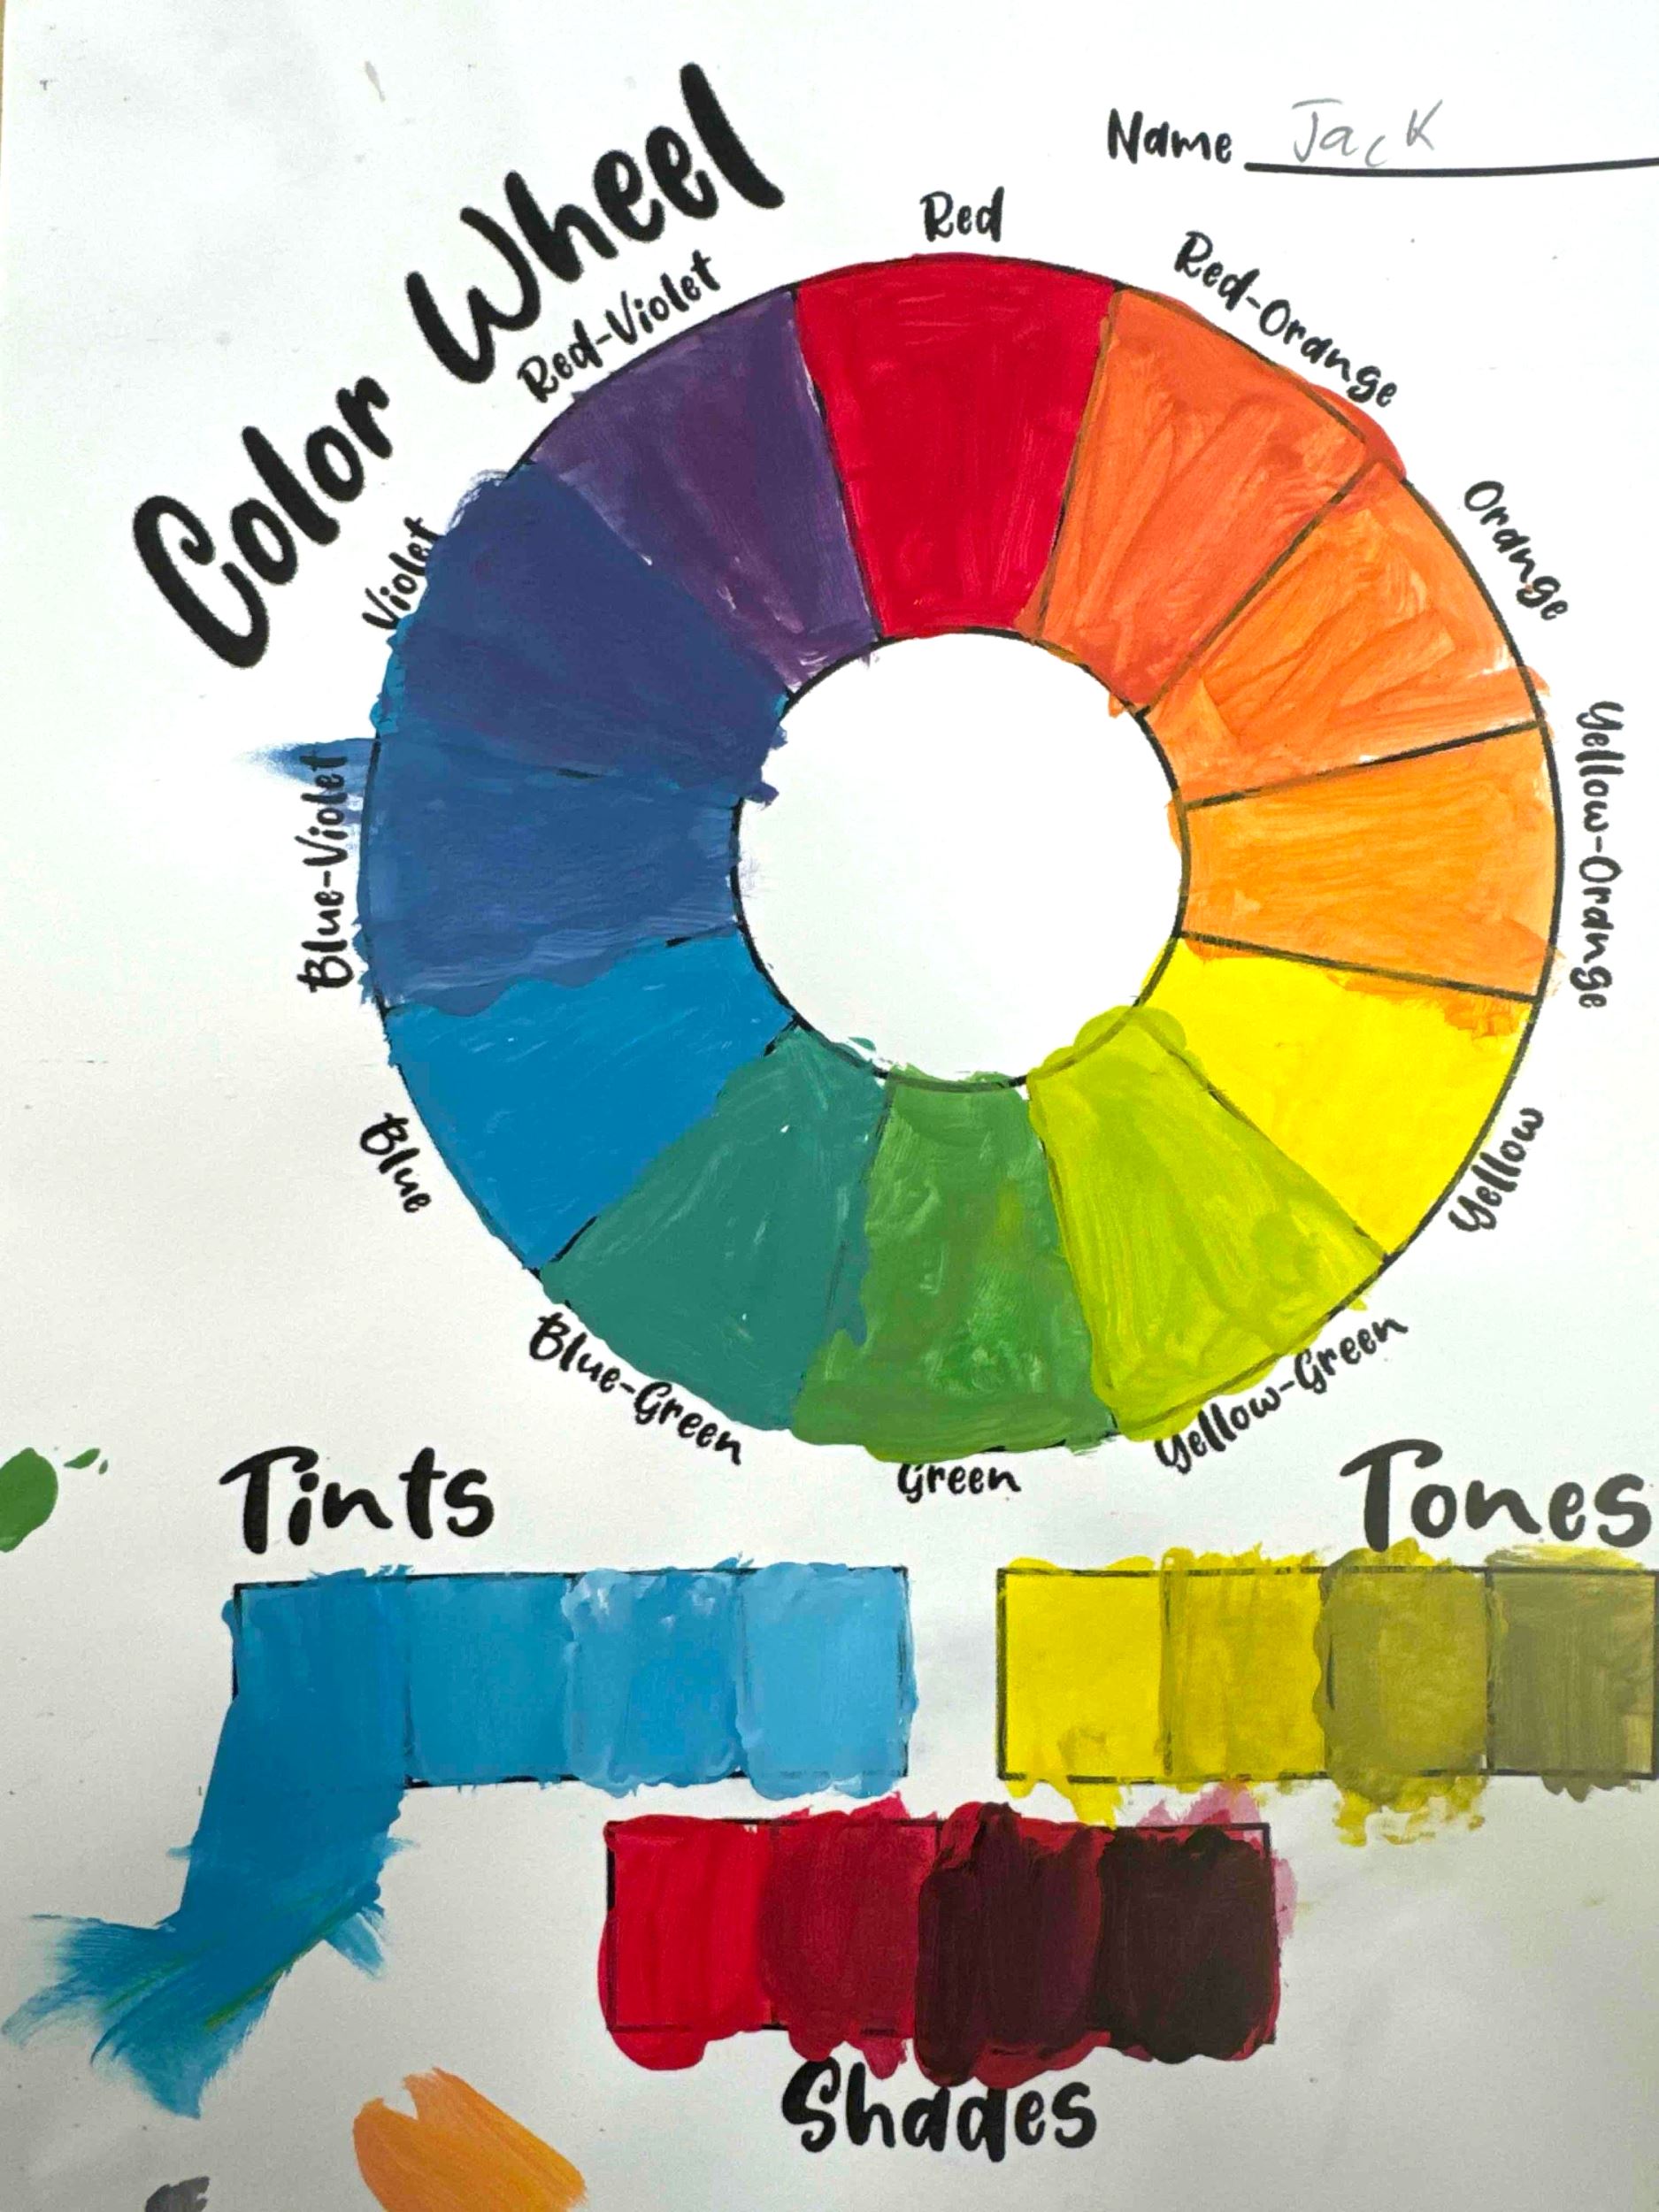 Color Wheel
Name Jack
Red
Red-Orange
Orange
Yellow-Orange
Yellow
Yellow-Green
Green
Blue-Green
Blue
Blue-Violet
Violet
Red-Violet
Tints
Tones
Shades